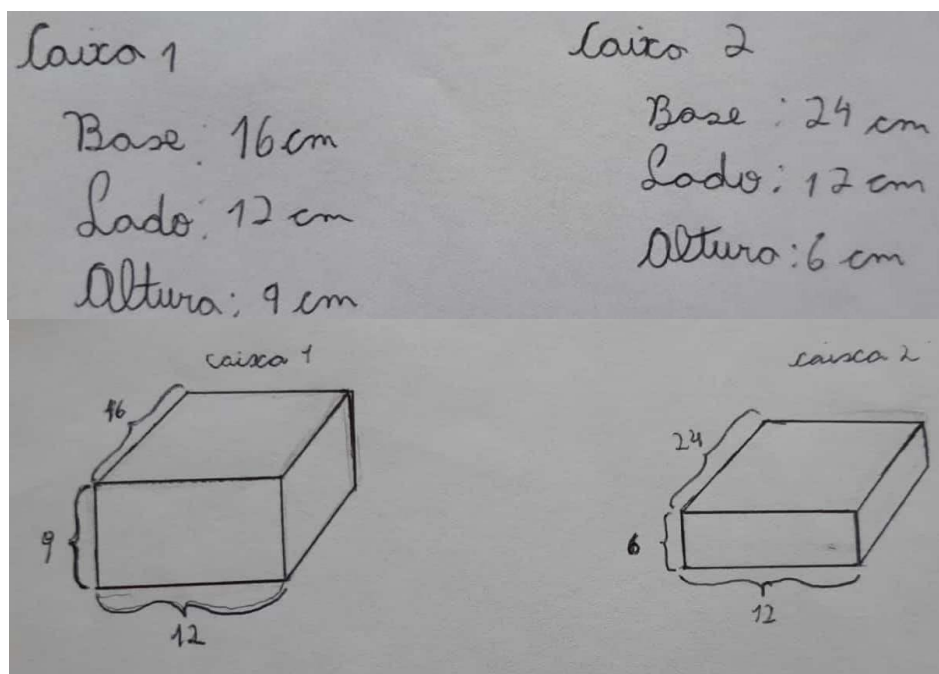 Caixa 1
Base: 16 cm
Lado: 12 cm
Altura: 9 cm
Caixa 2
Base: 24 cm
Lado: 12 cm
Altura: 6 cm
caixa 1
16
9
12
caixa 2
24
6
12